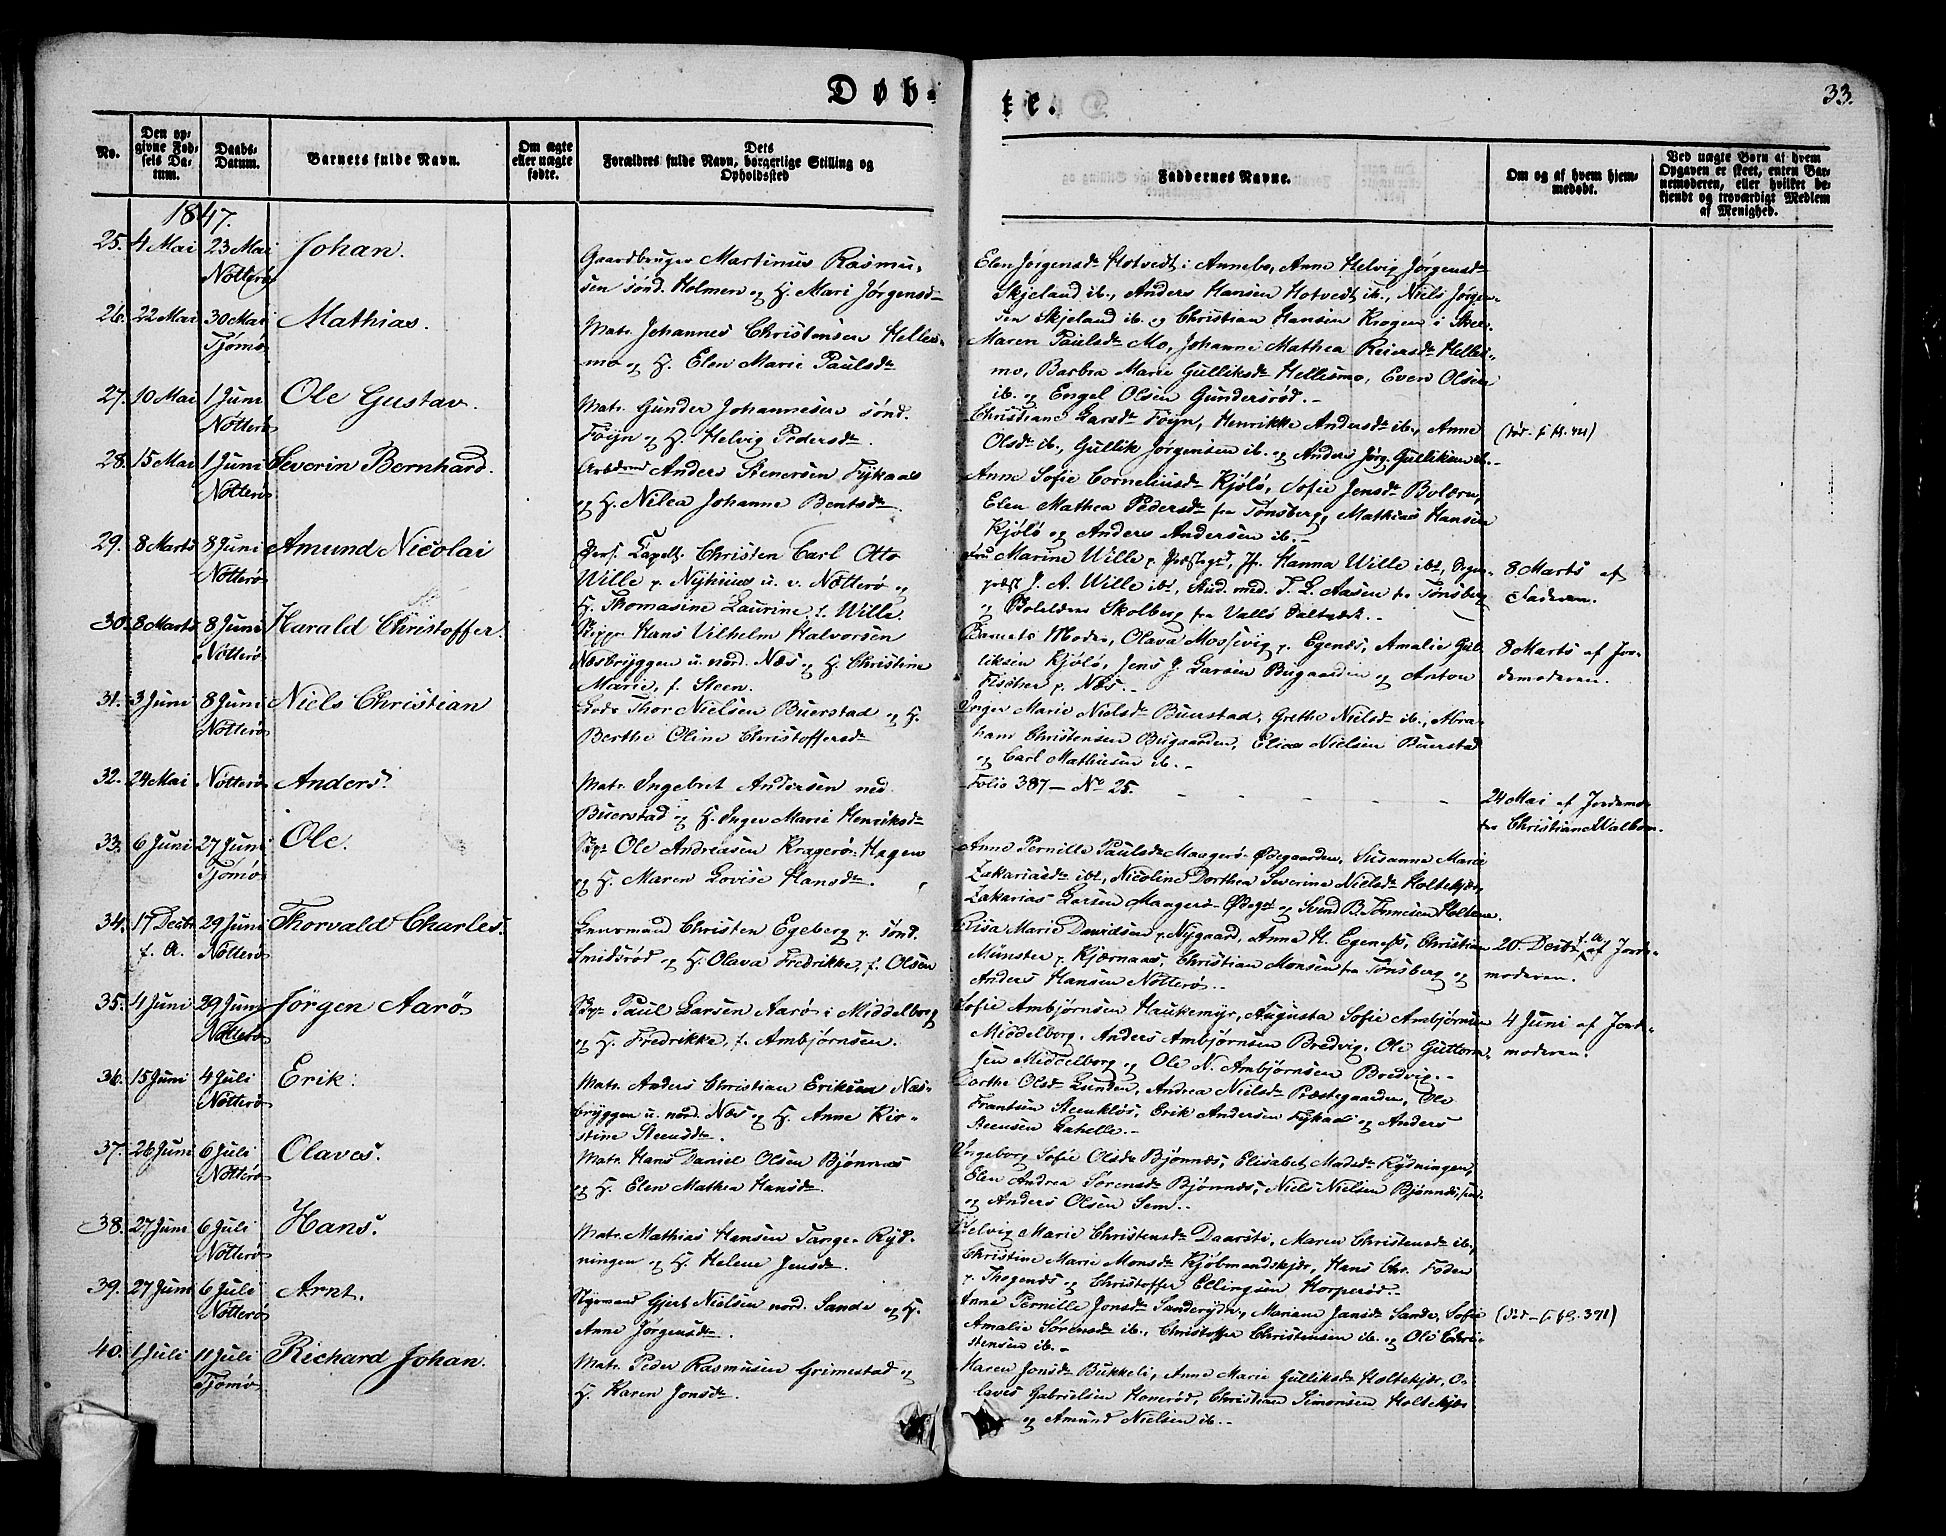 Døb-
te.
33.
No.
Den op-
givne Fød-
sels Da-
tum.
Daabs-
Datum.
Barnets fulde Navn.
Om ægte
eller uægte
fødte.
Dets
Forældres fulde Navn, borgerlige Stilling og
Opholdssted
Faddernes Navne.
Om og af hvem hjem-
medøbt.
Ved uægte Børn af hvem
Opgaven er skeet, enten Bar-
nemoderen, eller hvilket be-
kjendt og troværdigt Medlem
af Menighed.
1847.
25. 4 Mai 23 Mai Nötterø Johan.
Gaardbruger Martinus Rasmu-
sen sönd. Holmen og H. Mari Jørgensd
Elen Jørgensd Hotvedt i Annebo, Anne Helvig Jørgensd
Skjeland ib., Anders Hansen Hotvedt ib., Niels Jørgen-
sen Skjeland ib. og Christian Hansen Krogen i
26. 22 Mai 30 Mai Tjømø Mathias.
Matr. Johannes Christensen Helles-
mo og H. Elen Marie Paulsd
Maren Paulsd Mo, Johanne Mathea Reiersd Helles-
mo, Barbra Marie Gulliksd Hellesmo, Even Olsen
ib. og Engel Olsen Gundersrød.
27. 10 Mai 1 Juni Nötterø Ole Gustav.
Matr. Gunder Johannesen sönd.
Föyn og H. Helvig Pedersd.
Christiane Larsd Föyn, Henrikke Andersd ib., Anne
Olsd ib., Gullik Jørgensen ib. og Anders Jørg. Gulliksen ib.
28. 15 Mai 1 Juni Nötterø Severin Bernhard.
Anders Stenersen Fykaas
og H. Nilea Johanne Bentsd.
Anne Sofie Corneliusd Kjölö, Sofie Jensd Bolærn,
Elen Mathea Pedersd fra Tønsberg, Mathias Hansen
Kjölö og Anders Andersen ib.
29. 8 Marts 8 Juni Nötterø Amund Nicolai
Pers. Capell. Christen Carl Otto
Wille p. Nyhuus u. v. Nøtterø og
H. Thomasine Laurine f. Wille.
Fru Marine Wille p. Præstegd, Jfr. Hanna Wille ibt, Sogne-
præst J. A. Wille ibt, Stud. med. T. L. Aasen fra Tønsberg
og Skolberg fra Vallö Saltværk.
8 Marts af
Faderen.
30. 8 Marts 8 Juni Nötterø Harald Christoffer.
Skipper Hans Vilhelm Halvorsen
Næsbryggen u. nord. Næs og H. Christine
Marie, f. Steen.
Barnets Moder, Olava Mossevig p. Egenæs, Amalie Gul-
liksen Kjölö, Jens J. Larsen Bugaarden og Anton
Fischer p. Næs.
8 Marts af Jor-
demoderen.
31. 3 Juni 8 Juni Nötterø Niels Christian
Lods Thor Nielsen Buerstad og H.
Berthe Oline Christoffersd
Inger Marie Nielsd Buerstad, Grethe Nielsd ib., Abra-
ham Christensen Bugaarden, Elias Nielsen Buerstad
og Carl Mathisen ib.
32. 24 Mai Nötterø Anders.
Matr. Ingebret Andersen ned.
Buerstad og H. Inger Marie Henriksd
Folio 387 - No 25.
24 Mai af Jordemo-
der Christiane Walbom.
33. 6 Juni 27 Juni Tjømø Ole.
Ole Andreasen Kragerö-Hagen
og H. Maren Lovise Hansd.
Anne Pernille Paulsd Maagerö-Ødegaarden, Susanne Marie
Zakariasd ibt, Nicoline Dorthea Severine Nielsd Holtekjær,
Zakarias Larsen Maagerö-Ødegd og Svend B. Tønnesen Holtene.
34. 17 Decbr f. A. 29 Juni Nötterø Thorvald Charles.
Lensmand Christen Egeberg p. sønd.
Smidsrød og H. Olava Fredrikke, f. Olsen
Risa Marie Davidsen p. Nygaard, Anna H. Egeness, Christian
Münster p. Kjærnaas, Christian Monsen fra Tønsberg og
Anders Hansen Nötterø.
20. Decbr f. A. af Jorde-
moderen.
35. 4 Juni 29 Juni Nötterø Jörgen Aarø
Paul Larsen Aarø i Middelborg
og H. Fredrikke, f. Ambjørnsen.
Sofie Ambjörnsen Haukemyr, Augusta Sofie Ambjørnsen
Middelborg, Anders Ambjörnsen Bredvig, Ole Guttorm-
sen Middelborg og Ole N. Ambjörnsen Bredvig.
4 Juni af Jord-
moderen.
36. 15 Juni 4 Juli Nötterø Erik.
Matr. Anders Christian Eriksen Næs-
bryggen u. nord. Næs og H. Anne Kir-
stine Steensd.
Dorthe Olsd Lunden, Andrea Nielsd Præstegaarden, Ole
Frantsen Steenklös, Erik Andersen Fykaas og Anders
Steensen Gahelle.
37. 26 Juni 6 Juli Nötterø Olaves.
Matr. Hans Daniel Olsen Bjønnæs
og H. Elen Mathea Hansd.
Ingeborg Sofie Olsd Bjønnæs, Elisabet Madsd Rydningen,
Elen Andrea Sørensd Bjønnæs, Niels Nielsen Bjønnæs, sen.
og Anders Olsen Sem.
38. 27 Juni 6 Juli Nötterø Hans.
Matr. Mathias Hansen Tange-Ryd-
ningen og H. Helene Jensd.
Helvig Marie Christensd Daarsti, Maren Christensd ib.,
Christine Marie Monsd Kjøbmandskjær, Hans Chr. Foden
p. Thogenæs og Christoffer Ellingsen Horperød.
39. 27 Juni 6 Juli Nötterø Arnt.
Styrmand Gjert Nielsen nord. Sande og H.
Anne Jørgensd.
Anne Pernille Jonsd Sanderydn, Mariane Jansd Sande, Sofie
Amalie Sørensd ib., Christoffer Christensen ib. og Ole Chri-
stensen ib.
40. 1 Juli 11 Juli Tjømø Richard Johan.
Matr. Peder Rasmusen Grimestad og
H. Karen Jonsd.
Maren Jonsd Bukkeli, Anne Marie Gulliksd Holtekjær, O-
laves Gabrielsen Honerød, Christian Simonsen Holtekjær
og Amund Nielsen ib.